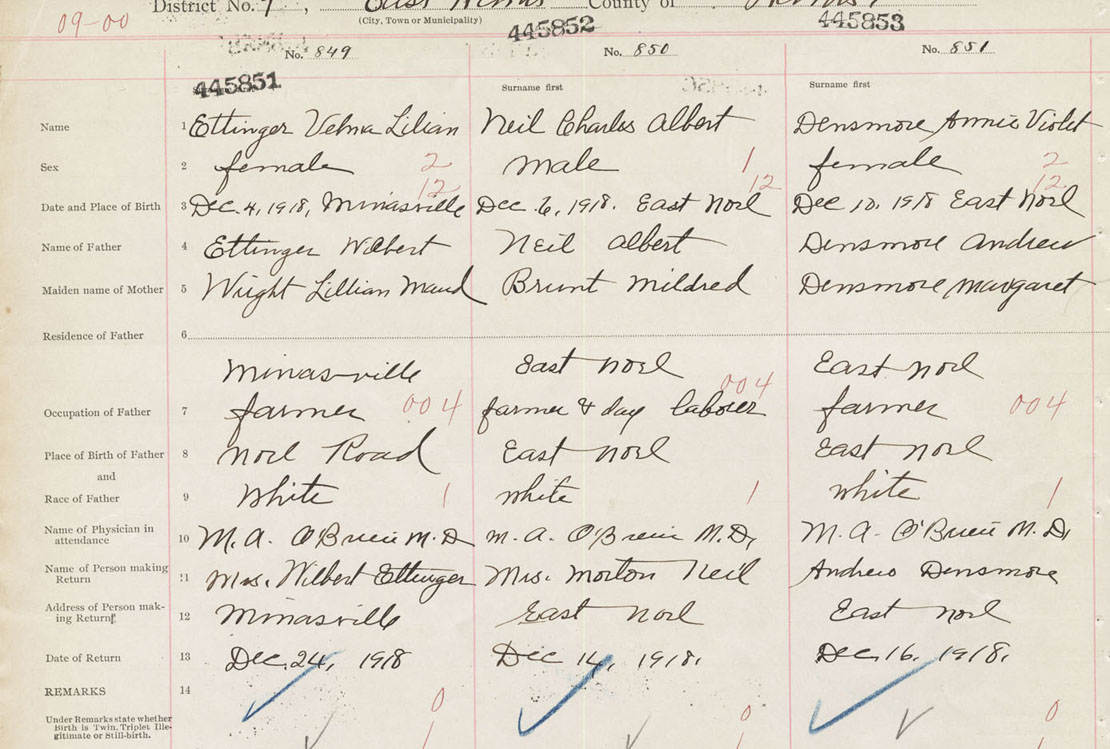 District No. 7, East Hants County of Hants
(City, Town or Municipality)
09-00
445852 445853
No. 849 No. 850 No. 851
445851
Surname first Surname first
Name 1 Ettinger Velma Lilian Neil Charles Albert Densmore Annie Violet
Sex 2 female 2 male 1 female 2
12 12 12
Date and Place of Birth 3 Dec. 4, 1918, Minasville Dec 6, 1918. East Noel Dec 10. 1918 East Noel
Name of Father 4 Ettinger Wilbert Neil Albert Densmore Andrew
Maiden name of Mother 5 Wright Lillian Maud Brunt Mildred Densmore Margaret
Residence of Father 6
Minasville East Noel East Noel
Occupation of Father 7 farmer 004 farmer & day labourer 004 farmer 004
Place of Birth of Father 8 Noel Road East Noel East Noel
and
Race of Father 9 White 1 white 1 white 1
Name of Physician in
attendance 10 M. A. O'Brien M. D M. A. O'Brien M. D, M. A. O'Brien M. D,
Name of Person making
Return 11 Mrs. Wilbert Ettinger Mrs. Morton Neil Andrew Densmore
Address of Person mak-
ing Return 12 Minasville East Noel East Noel
Date of Return 13 Dec. 24, 1918 Dec 14, 1918. Dec. 16, 1918.
REMARKS 14
Under Remarks state whether 0 0 0
Birth is Twin, Triplet Ille-
gitimate or Still-birth. 1 1 1